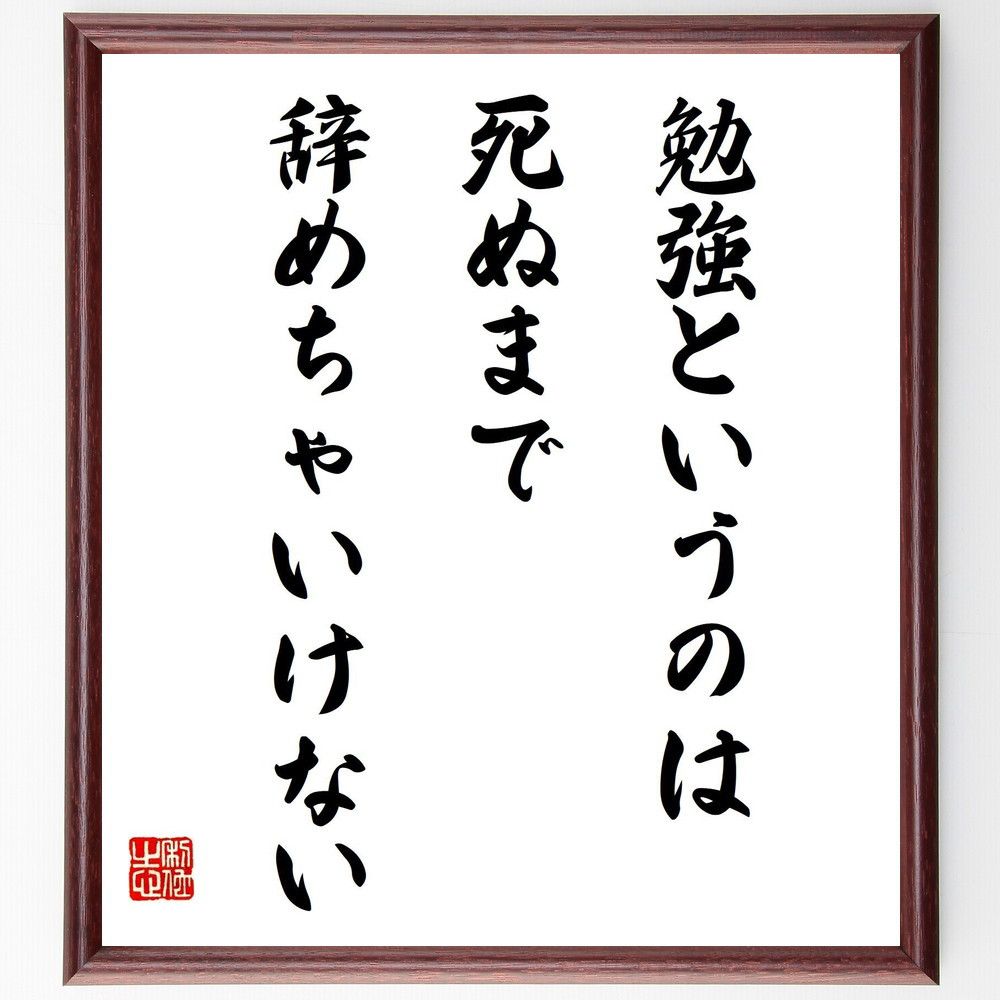 勉強というのは
死ぬまで
辞めちゃいけない